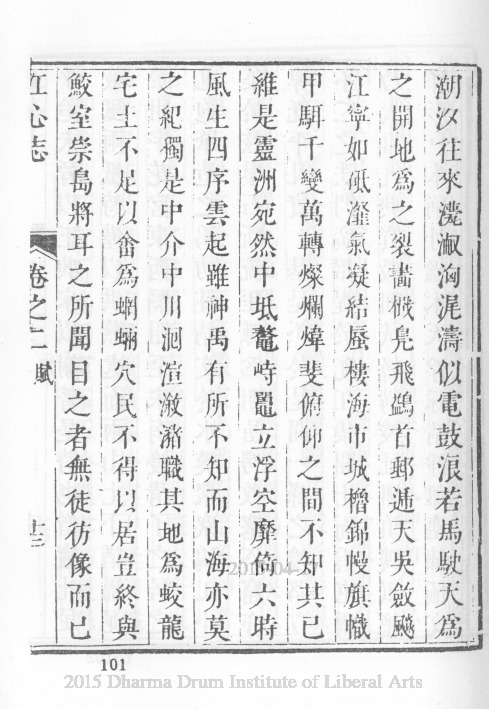 潮汐往來漉溆洶浘濤似電鼓浪若馬駛天爲
之開地爲之裂畵檝鳧飛鷁首郵逓天吳斂颷
江寧如砥瀣氣凝結蜃樓海市城櫓錦幔旗幟
甲駬千變萬轉燦爛煒斐俯仰之間不知其已
維是靈洲宛然中坻鼇峙鼉立浮空靡倚六時
風生四序雲起雖神禹有所不知而山海亦莫
之紀獨是中介中川洄渲潋潴職其地爲蛟龍
宅土不足以畬爲蝄蜽穴民不得以居豈終與
鮫室崇島將耳之所聞目之者無徒彷像而已
江心志 卷之二 賦 十三
101
2015 Dharma Drum Institute of Liberal Arts